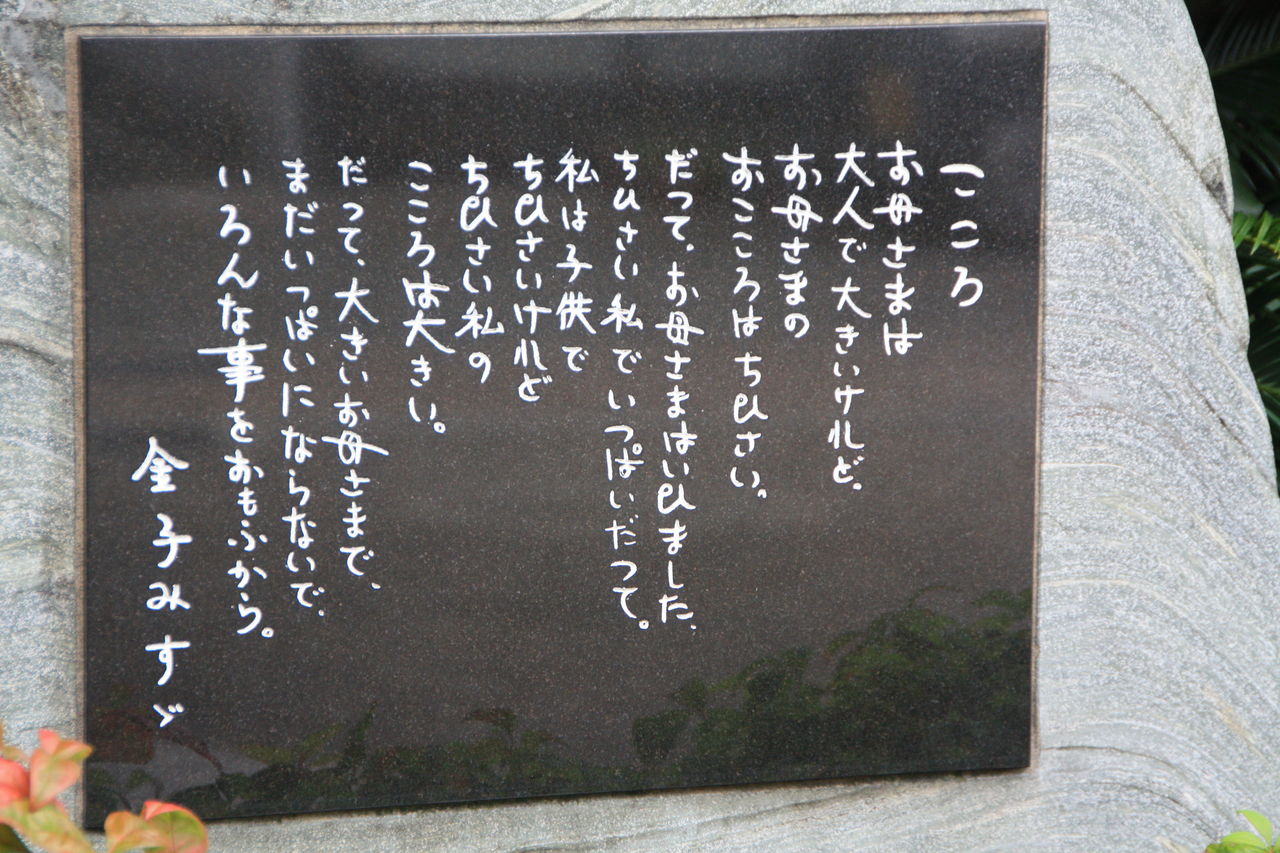 こころ
お母さまは
大人で大きいけれど、
お母さまの
おこころはちひさい。
だって、お母さまはいひました、
ちひさい私でいっぱいだって。
私は子供で
ちひさいけれど
ちひさい私の
こころは大きい。
だって、大きいお母さまで、
まだいっぱいにならないで、
いろんな事をおもふから。
金子みすゞ